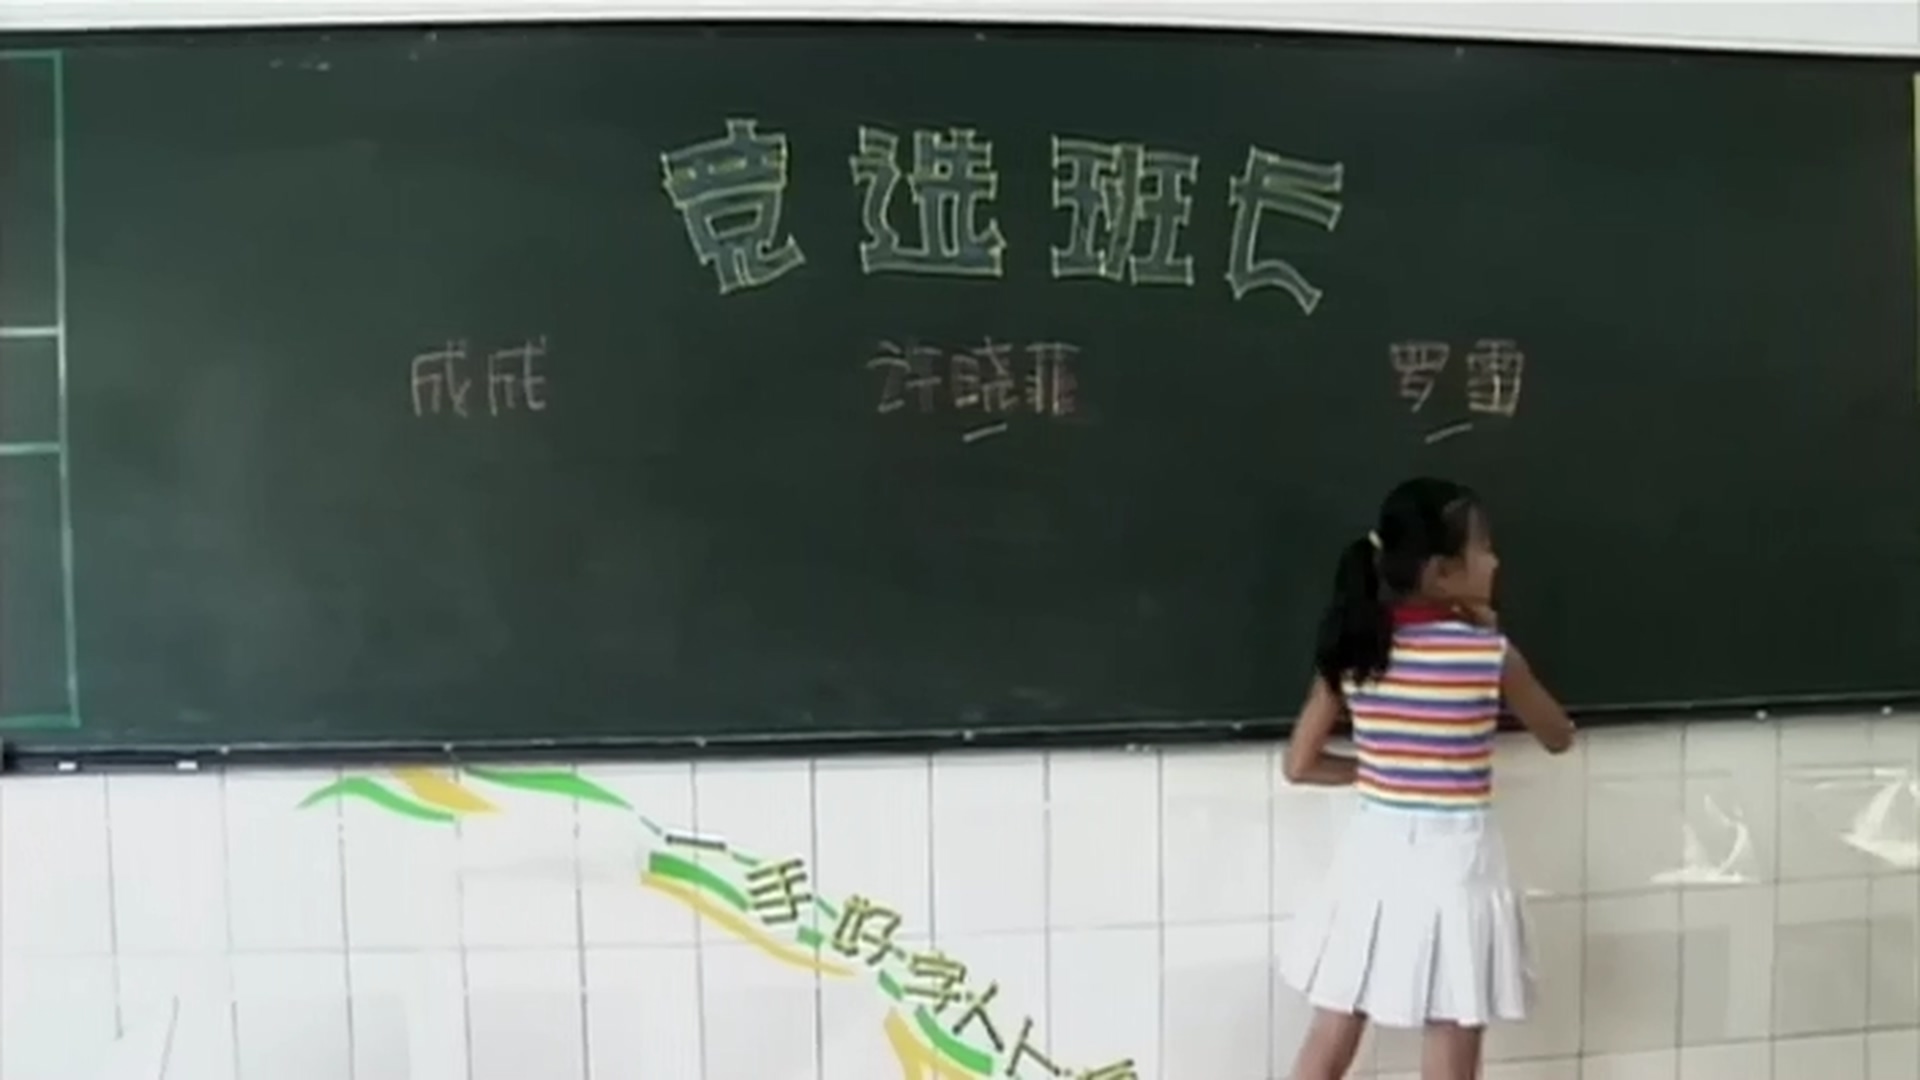 竞选班长
成成 许晓菲 罗雷
一手好字人人